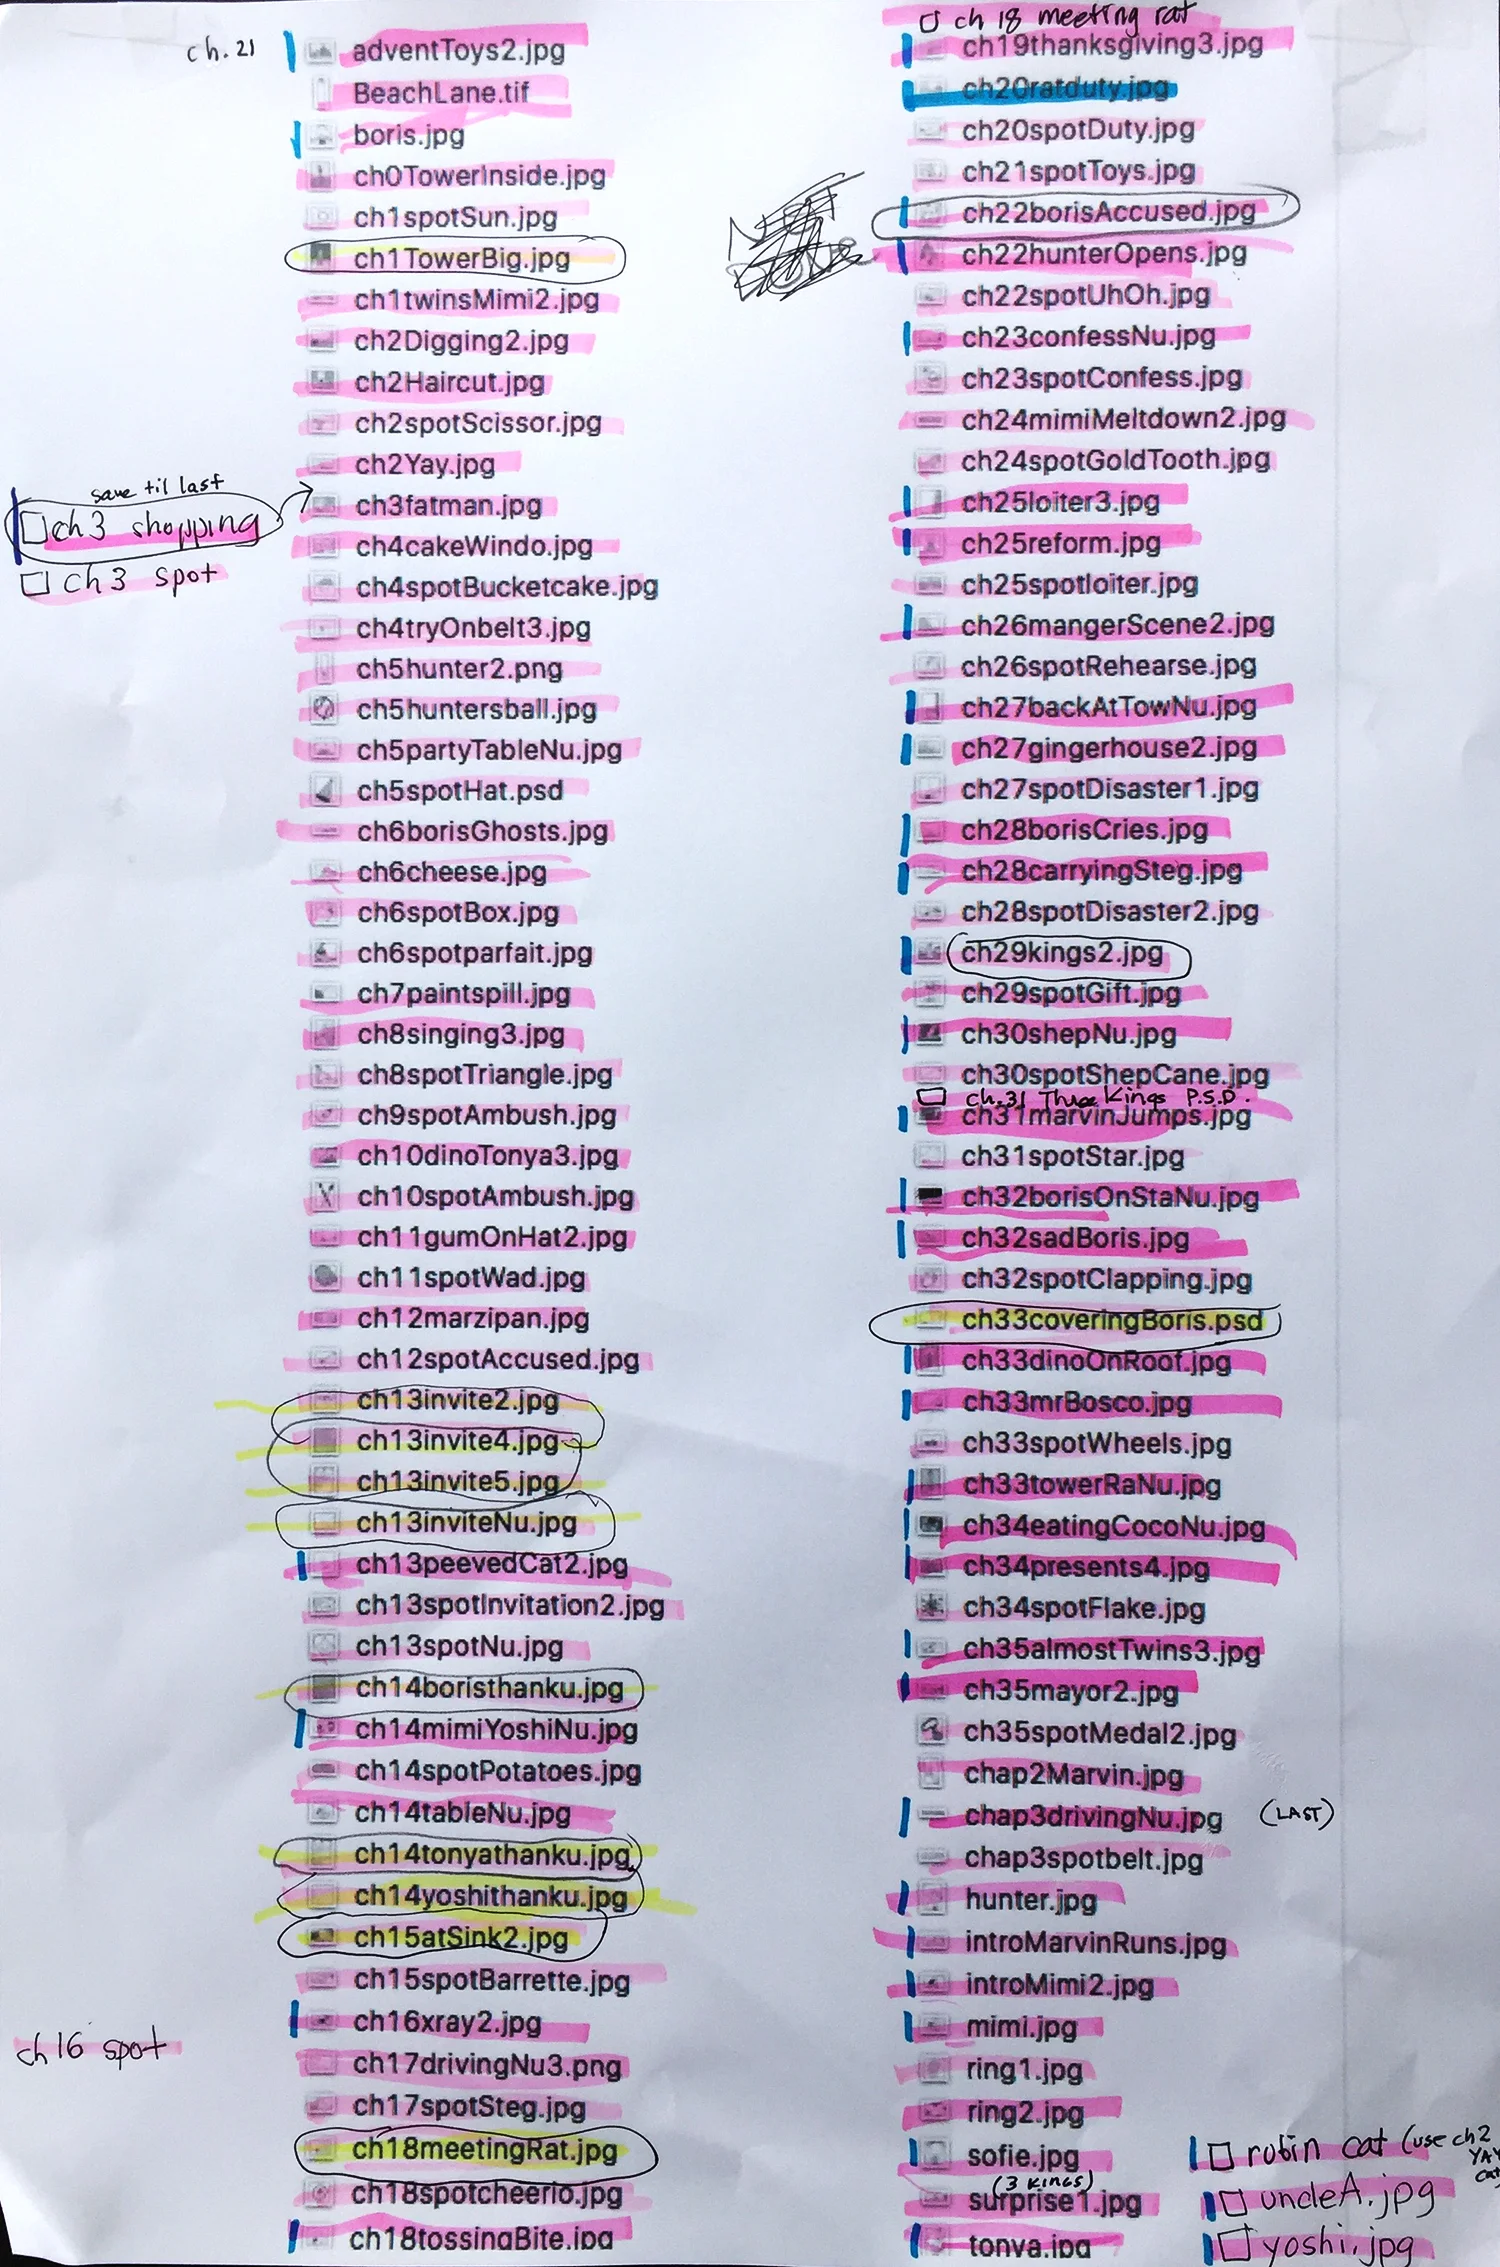 ch. 21
adventToys2.jpg
BeachLane.tif
boris.jpg
ch0TowerInside.jpg
ch1spotSun.jpg
ch1TowerBig.jpg
ch1twinsMimi2.jpg
ch2Digging2.jpg
ch2Haircut.jpg
ch2spotScissor.jpg
ch2Yay.jpg
save til last
ch3 shopping
ch3fatman.jpg
ch4cakeWindo.jpg
ch3 spot
ch4spotBucketcake.jpg
ch4tryOnbelt3.jpg
ch5hunter2.png
ch5huntersball.jpg
ch5partyTableNu.jpg
ch5spotHat.psd
ch6borisGhosts.jpg
ch6cheese.jpg
ch6spotBox.jpg
ch6spotparfait.jpg
ch7paintspill.jpg
ch8singing3.jpg
ch8spotTriangle.jpg
ch9spotAmbush.jpg
ch10dinoTonya3.jpg
ch10spotAmbush.jpg
ch11gumOnHat2.jpg
ch11spotWad.jpg
ch12marzipan.jpg
ch12spotAccused.jpg
ch13invite2.jpg
ch13invite4.jpg
ch13invite5.jpg
ch13inviteNu.jpg
ch13peevedCat2.jpg
ch13spotInvitation2.jpg
ch13spotNu.jpg
ch14boristhanku.jpg
ch14mimiYoshiNu.jpg
ch14spotPotatoes.jpg
ch14tableNu.jpg
ch14tonyathanku.jpg
ch14yoshithanku.jpg
ch15atSink2.jpg
ch15spotBarrette.jpg
ch16xray2.jpg
ch16 spot
ch17drivingNu3.png
ch17spotSteg.jpg
ch18meetingRat.jpg
ch18spotcheerio.jpg
ch18tossingBite.jpg
ch 18 meeting rat
ch19thanksgiving3.jpg
ch20ratduty.jpg
ch20spotDuty.jpg
ch21spotToys.jpg
ch22borisAccused.jpg
NOT
DONE
ch22hunterOpens.jpg
ch22spotUhOh.jpg
ch23confessNu.jpg
ch23spotConfess.jpg
ch24mimiMeltdown2.jpg
ch24spotGoldTooth.jpg
ch25loiter3.jpg
ch25reform.jpg
ch25spotloiter.jpg
ch26mangerScene2.jpg
ch26spotRehearse.jpg
ch27backAtTowNu.jpg
ch27gingerhouse2.jpg
ch27spotDisaster1.jpg
ch28borisCries.jpg
ch28carryingSteg.jpg
ch28spotDisaster2.jpg
ch29kings2.jpg
ch29spotGift.jpg
ch30shepNu.jpg
ch30spotShepCane.jpg
ch.31 Three Kings P.S.D.
ch31marvinJumps.jpg
ch31spotStar.jpg
ch32borisOnStaNu.jpg
ch32sadBoris.jpg
ch32spotClapping.jpg
ch33coveringBoris.psd
ch33dinoOnRoof.jpg
ch33mrBosco.jpg
ch33spotWheels.jpg
ch33towerRaNu.jpg
ch34eatingCocoNu.jpg
ch34presents4.jpg
ch34spotFlake.jpg
ch35almostTwins3.jpg
ch35mayor2.jpg
ch35spotMedal2.jpg
chap2Marvin.jpg
chap3drivingNu.jpg (LAST)
chap3spotbelt.jpg
hunter.jpg
introMarvinRuns.jpg
introMimi2.jpg
mimi.jpg
ring1.jpg
ring2.jpg
sofie.jpg
(3 KINGS)
surprise1.jpg
tonya.jpg
robin cat (use ch2
YAY
cat)
uncleA.jpg
yoshi.jpg